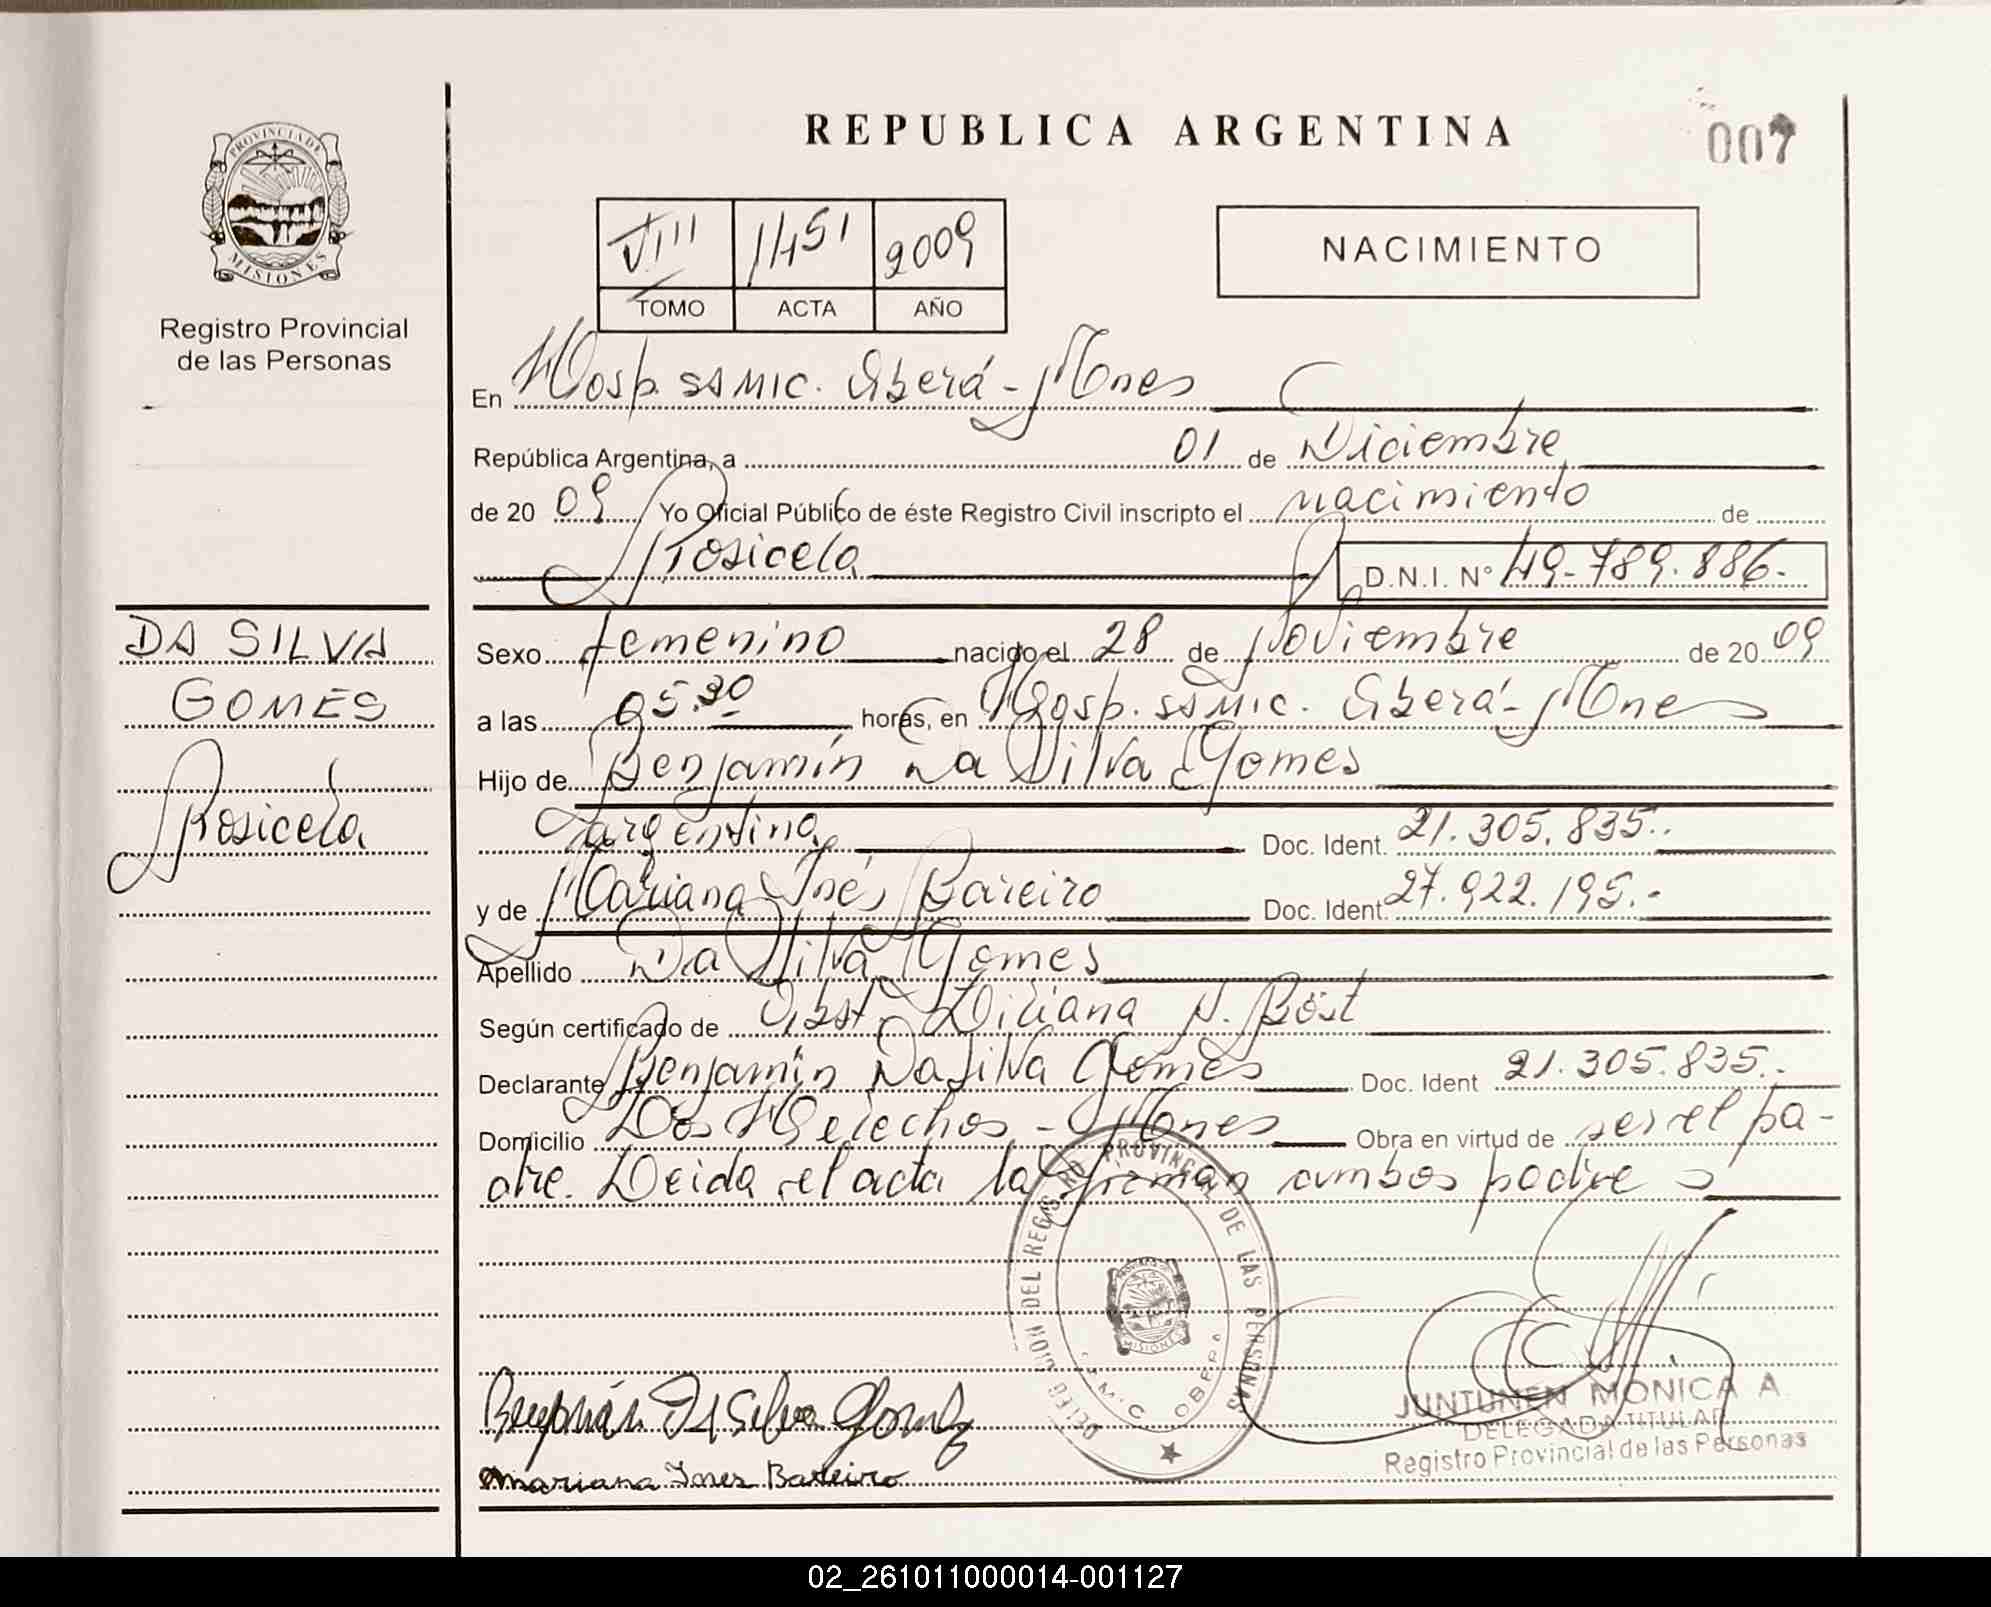 REPUBLICA ARGENTINA
007
PROVINCIA DE
MISIONES
Registro Provincial
de las Personas
VIII 1451 2009
TOMO ACTA AÑO
NACIMIENTO
En Hosp. SAMIC. Oberá - Mnes
República Argentina, a 01 de Diciembre
de 20 09 Yo Oficial Público de éste Registro Civil inscripto el nacimiento de
Rosicela D.N.I. N° 49.789.886.-
DA SILVA
GOMES
Rosicela
Sexo femenino nacido el 28 de Noviembre de 20 09
a las 05.30 horas, en Hosp. SAMIC. Oberá - Mnes
Hijo de Benjamín Da Silva Gomes
argentina Doc. Ident. 21.305.835.-
y de Mariana Inés Bareiro Doc. Ident. 27.922.195.-
Apellido Da Silva Gomes
Según certificado de Obst. Liliana N. Bost
Declarante Benjamín Da Silva Gomes Doc. Ident 21.305.835.-
Domicilio Dos Helechos - Mnes Obra en virtud de ser el pa-
dre. Leida el acta la firman ambos padres
DELEGACION DEL REGISTRO PROVINCIAL DE LAS PERSONAS
MISIONES
OBERA
Benjamín Da Silva Gomez
Mariana Ines Bareiro
JUNTUNEN MONICA A
DELEGADA TITULAR
Registro Provincial de las Personas
02_261011000014-001127